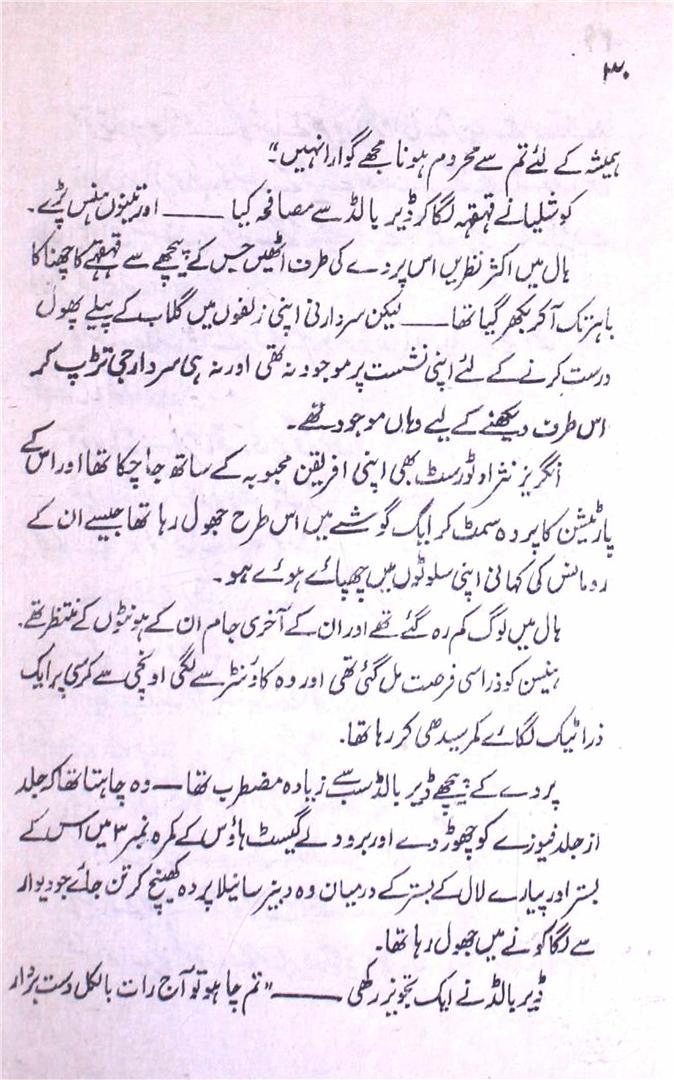 ۳۰
ہمیشہ کے لئے تم سے محروم ہونا مجھے گوارا نہیں۔"
کوشلیا نے قہقہہ لگا کر ڈیر بالڈ سے مصافحہ کیا ——— اور تینوں ہنس پڑے۔
ہال میں اکثر نظریں اس پردے کی طرف اٹھیں جس کے پیچھے سے قہقہے کا چھناکا
باہر تک آ کر بکھر گیا تھا ——— لیکن سردارنی اپنی زلفوں میں گلاب کے پیلے پھول
درست کرنے کے لئے اپنی نشست پر موجود نہ تھی اور نہ ہی سردار جی تڑپ کر
اس طرف دیکھنے کے لیے وہاں موجود تھے۔
انگریز نثراد ٹورسٹ بھی اپنی افریقن محبوبہ کے ساتھ جا چکا تھا اور اس کے
پارٹیشن کا پردہ سمٹ کر ایک گوشے میں اس طرح جھول رہا تھا جیسے ان کے
رومانس کی کہانی اپنی سلوٹوں میں چھپائے ہوئے ہو۔
ہال میں لوگ کم رہ گئے تھے اور ان کے آخری جام ان کے ہونٹوں کے منتظر تھے۔
ہنسن کو ذرا سی فرصت مل گئی تھی اور وہ کاؤنٹر سے لگی اونچی سے کرسی پر ایک
ذرا ٹیک لگائے کمر سیدھی کر رہا تھا۔
پردے کے پیچھے ڈیر بالڈ سب سے زیادہ مضطرب تھا — وہ چاہتا تھا کہ جلد
از جلد فیوزے کو چھوڑ دے اور برودلے گیسٹ ہاؤس کے کمرہ نمبر ۳ میں اس کے
بستر اور پیارے لال کے بستر کے درمیان وہ دبیز سا نیلا پردہ کھینچ کر تن جائے جو دیوار
سے لگا کونے میں جھول رہا تھا۔
ڈیر بالڈ نے ایک تجویز رکھی ——— "تم چاہو تو آج رات بالکل دست بردار